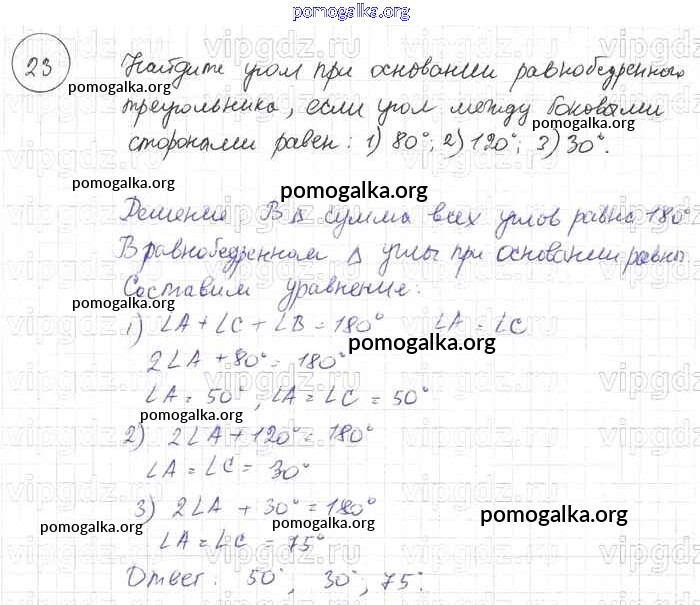 pomogalka.org
23
Найдите угол при основании равнобедренного
pomogalka.org
треугольника, если угол между боковыми
pomogalka.org
сторонами равен: 1) 80°; 2) 120°; 3) 30°.
pomogalka.org
pomogalka.org
Решение В Δ сумма всех углов равна 180°
В равнобедренном Δ углы при основании равны.
Составим уравнение:
pomogalka.org
1) ∠A + ∠C + ∠B = 180° ∠A = ∠C
pomogalka.org
2∠A + 80° = 180°
∠A = 50°, ∠A = ∠C = 50°
pomogalka.org
2) 2∠A + 120° = 180°
∠A = ∠C = 30°
3) 2∠A + 30° = 180°
pomogalka.org
pomogalka.org
pomogalka.org
∠A = ∠C = 75°
Ответ: 50°, 30°, 75°.